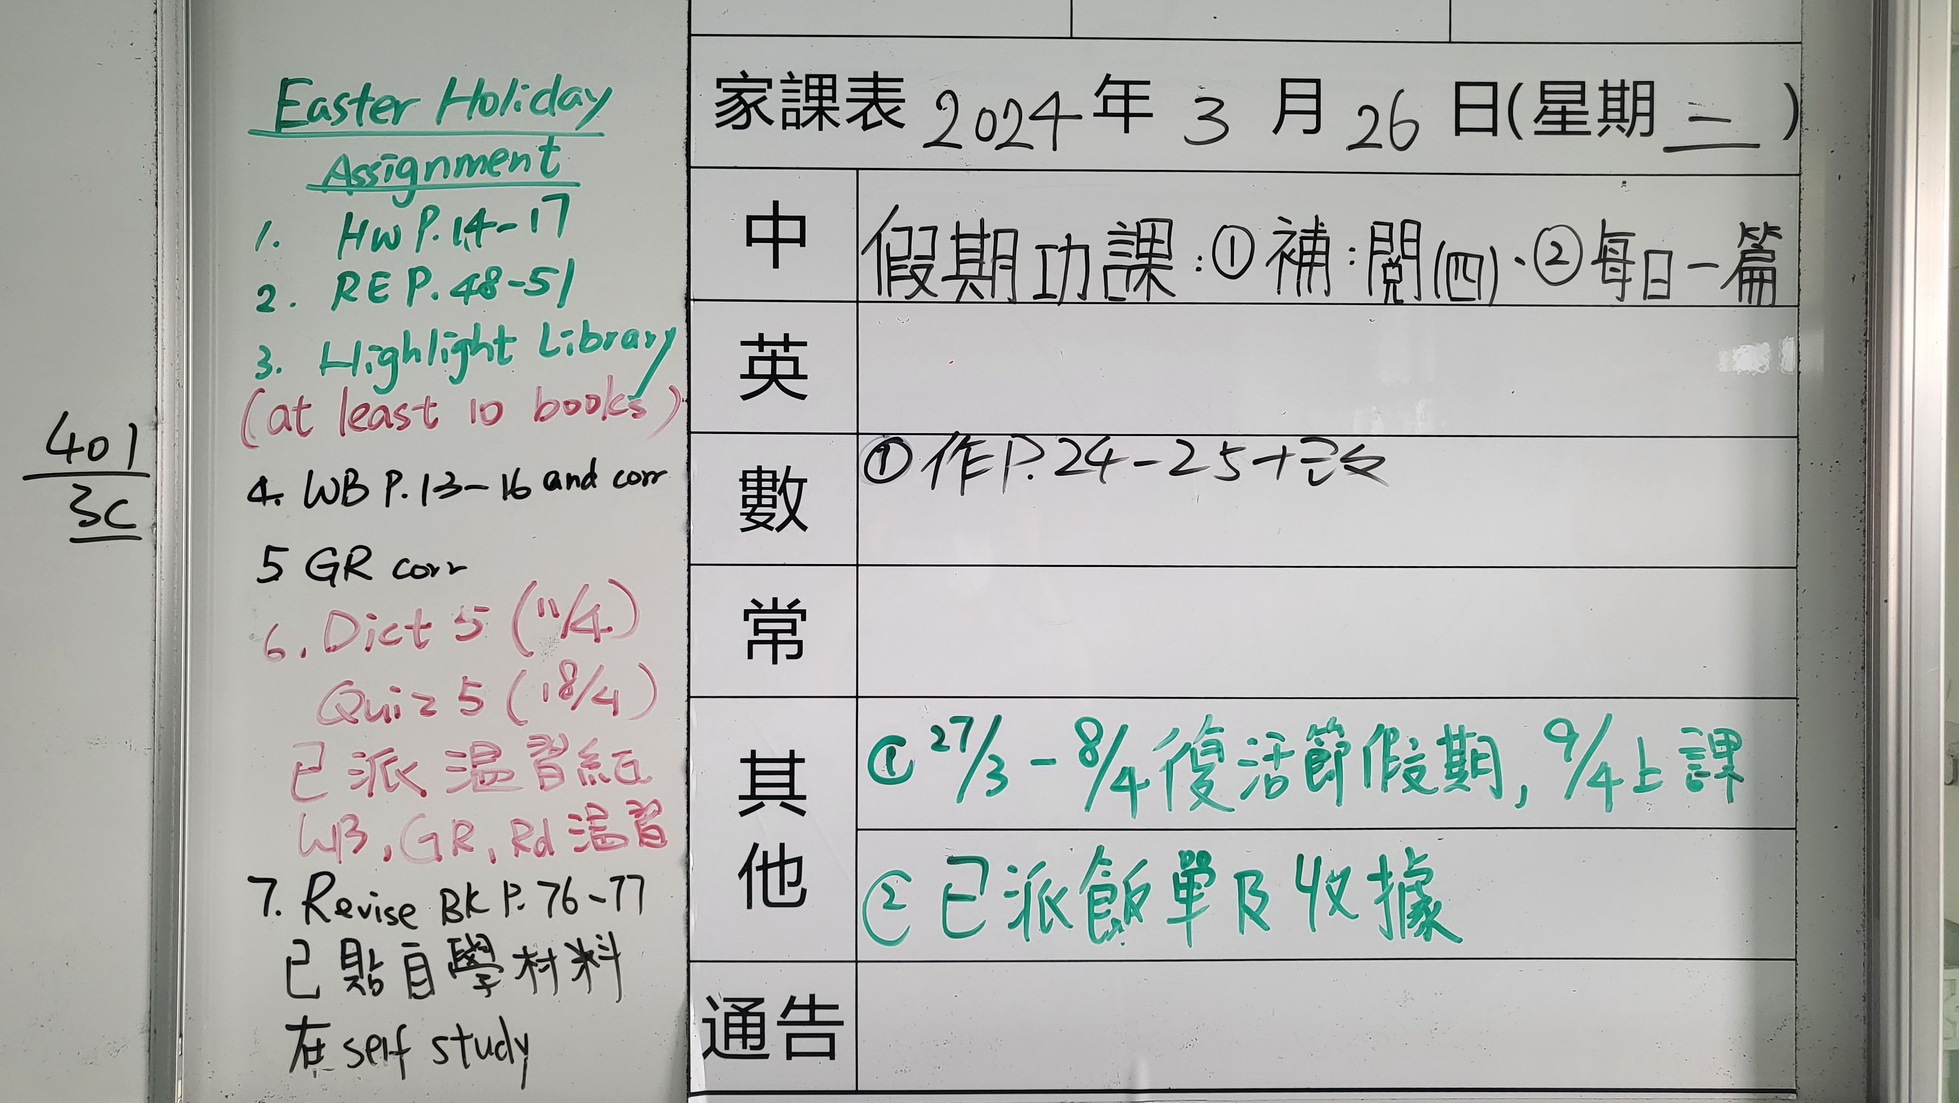 401
3C
Easter Holiday
Assignment
1. HW P.14-17
2. RE P.48-51
3. Highlight Library
(at least 10 books)
4. WB P.13-16 and corr
5 GR corr
6. Dict 5 (11/4)
Quiz 5 (18/4)
已派溫習紙
WB, GR, Rd 溫習
7. Revise BK P.76-77
已貼自學材料
在 self study
家課表 2024年 3月 26日(星期二)
中 假期功課:①補:閱(四)、②每日一篇
英
數 ①作P.24-25+已改
常
其他
①27/3-8/4復活節假期, 9/4上課
②已派飯單及收據
通告